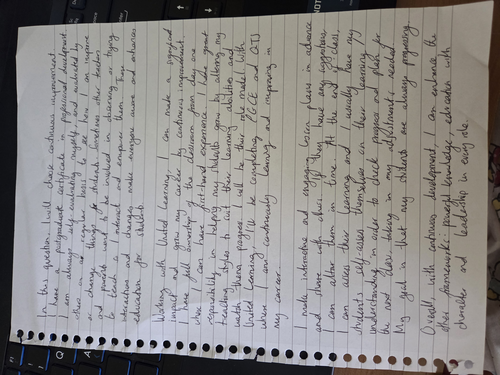 In this question I will show continuous improvement.
I have postgraduate certificate in professional development.
I am always self-evaluating myself, and evaluated by
others on a regular basis to see how I can improve
or change things. As students, sometimes other teachers
and parents want to be involved in observing or trying
to teach I interact and empower them. These
interaction and changes make everyone aware and enhances
education for students.
Working with United Learning, I can make a significant
impact and grow my career by continuous improvement.
I have full ownership of the classroom from day one
where I can have first-hand experience. I have great
responsibility in helping my students grow by altering my
teaching styles to suit their learning abilities and
watch them progress. I will be their role model. With
United Learning, I'll be completing PGCE and QTS
where I am continuously learning and improving in
my career.
I make interactive and engaging lesson plans in advance
and share with others. If they have any suggestions
I can alter them in time. At the end of class,
I can assess their learning and I usually have my
students self-assess themselves on their learning and
understanding in order to check progress and plan for
the next class taking in any adjustments needed.
My goal is that my students are always progressing.
Overall, with continuous development, I can embrace the
other frameworks: powerful knowledge, education with
character and leadership in every role.
Q
A